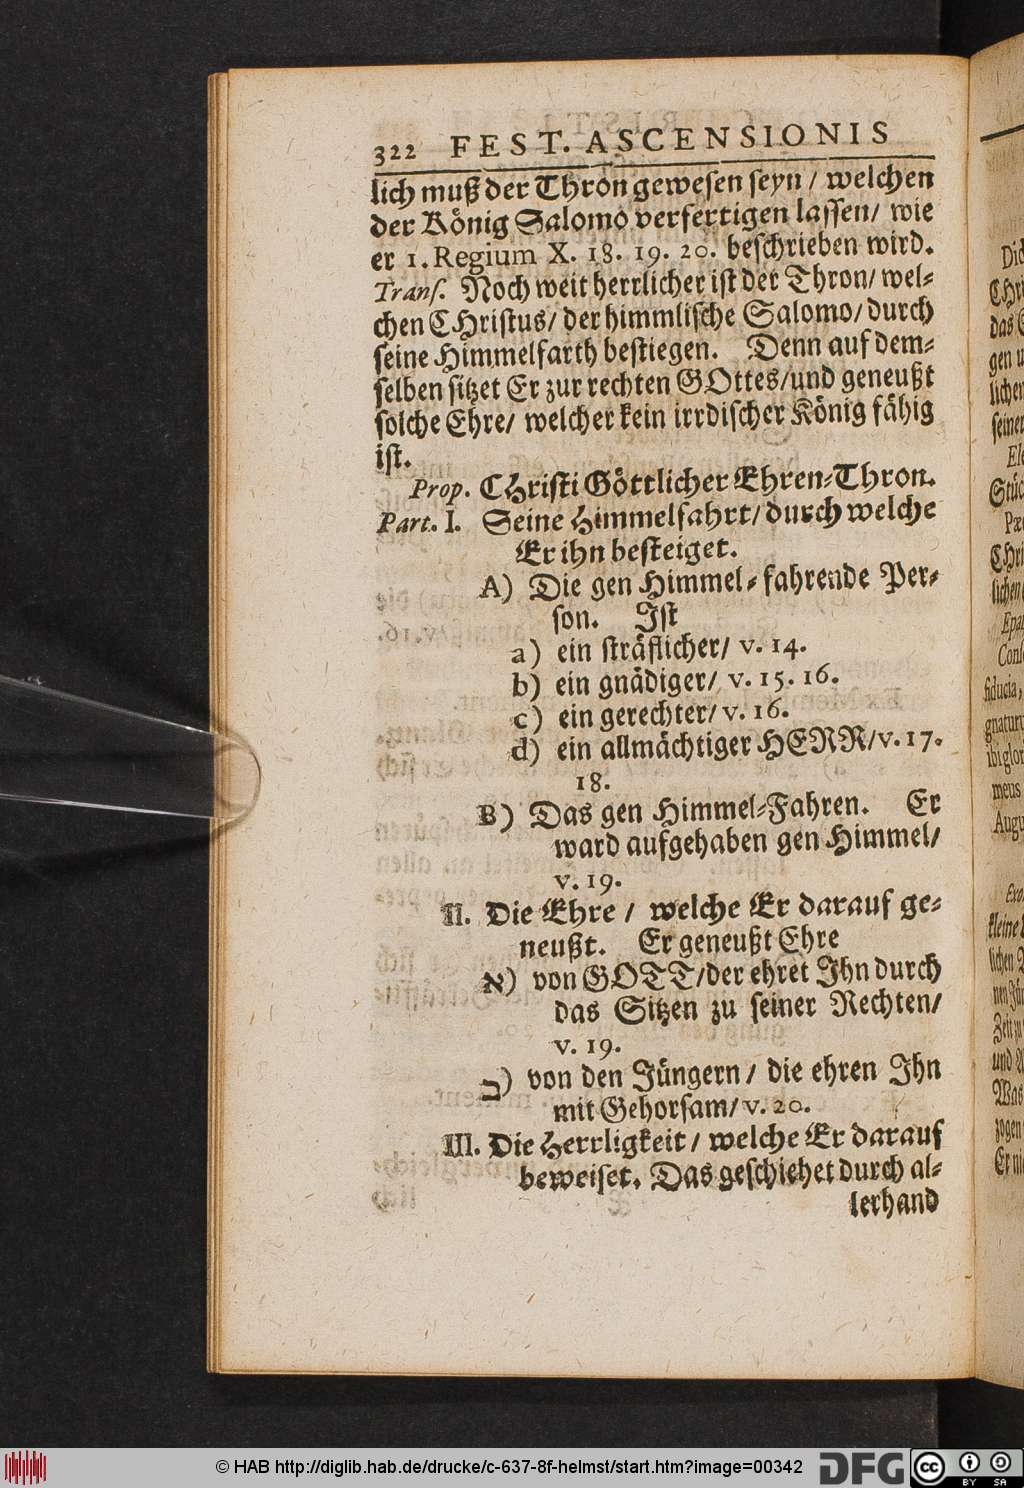 322 FEST. ASCENSIONIS
lich muß der Thron gewesen seyn / welchen
der König Salomo verfertigen lassen/ wie
er 1. Regium X. 18. 19. 20. beschrieben wird.
Trans. Noch weit herrlicher ist der Thron/ wel-
chen CHristus/ der himmlische Salomo/ durch
seine Himmelfarth bestiegen. Denn auf dem-
selben sitzet Er zur rechten GOttes/und geneußt
solche Ehre/ welcher kein irrdischer König fähig
ist.
Prop. CHristi Göttlicher Ehren-Thron.
Part. I. Seine Himmelfahrt/ durch welche
Er ihn besteiget.
A) Die gen Himmel-fahrende Per-
son. Ist
a) ein sträflicher/ v. 14.
b) ein gnädiger/ v. 15. 16.
c) ein gerechter/ v. 16.
d) ein allmächtiger HERR/v. 17.
18.
B) Das gen Himmel-Fahren. Er
ward aufgehaben gen Himmel/
v. 19.
II. Die Ehre / welche Er darauf ge-
neußt. Er geneußt Ehre
א) von GOTT/der ehret Ihn durch
das Sitzen zu seiner Rechten/
v. 19.
ב) von den Jüngern / die ehren Ihn
mit Gehorsam/ v. 20.
III. Die Herrligkeit / welche Er darauf
beweiset. Das geschiehet durch al-
lerhand
Chri
das
gen
lichen
seiner
Stüc
Chri
lichen
fiducia,
meus
Augu
kleine
lichen
Zeit
und
Was
zogen
© HAB http://diglib.hab.de/drucke/c-637-8f-helmst/start.htm?image=00342
DFG
cc
BY SA